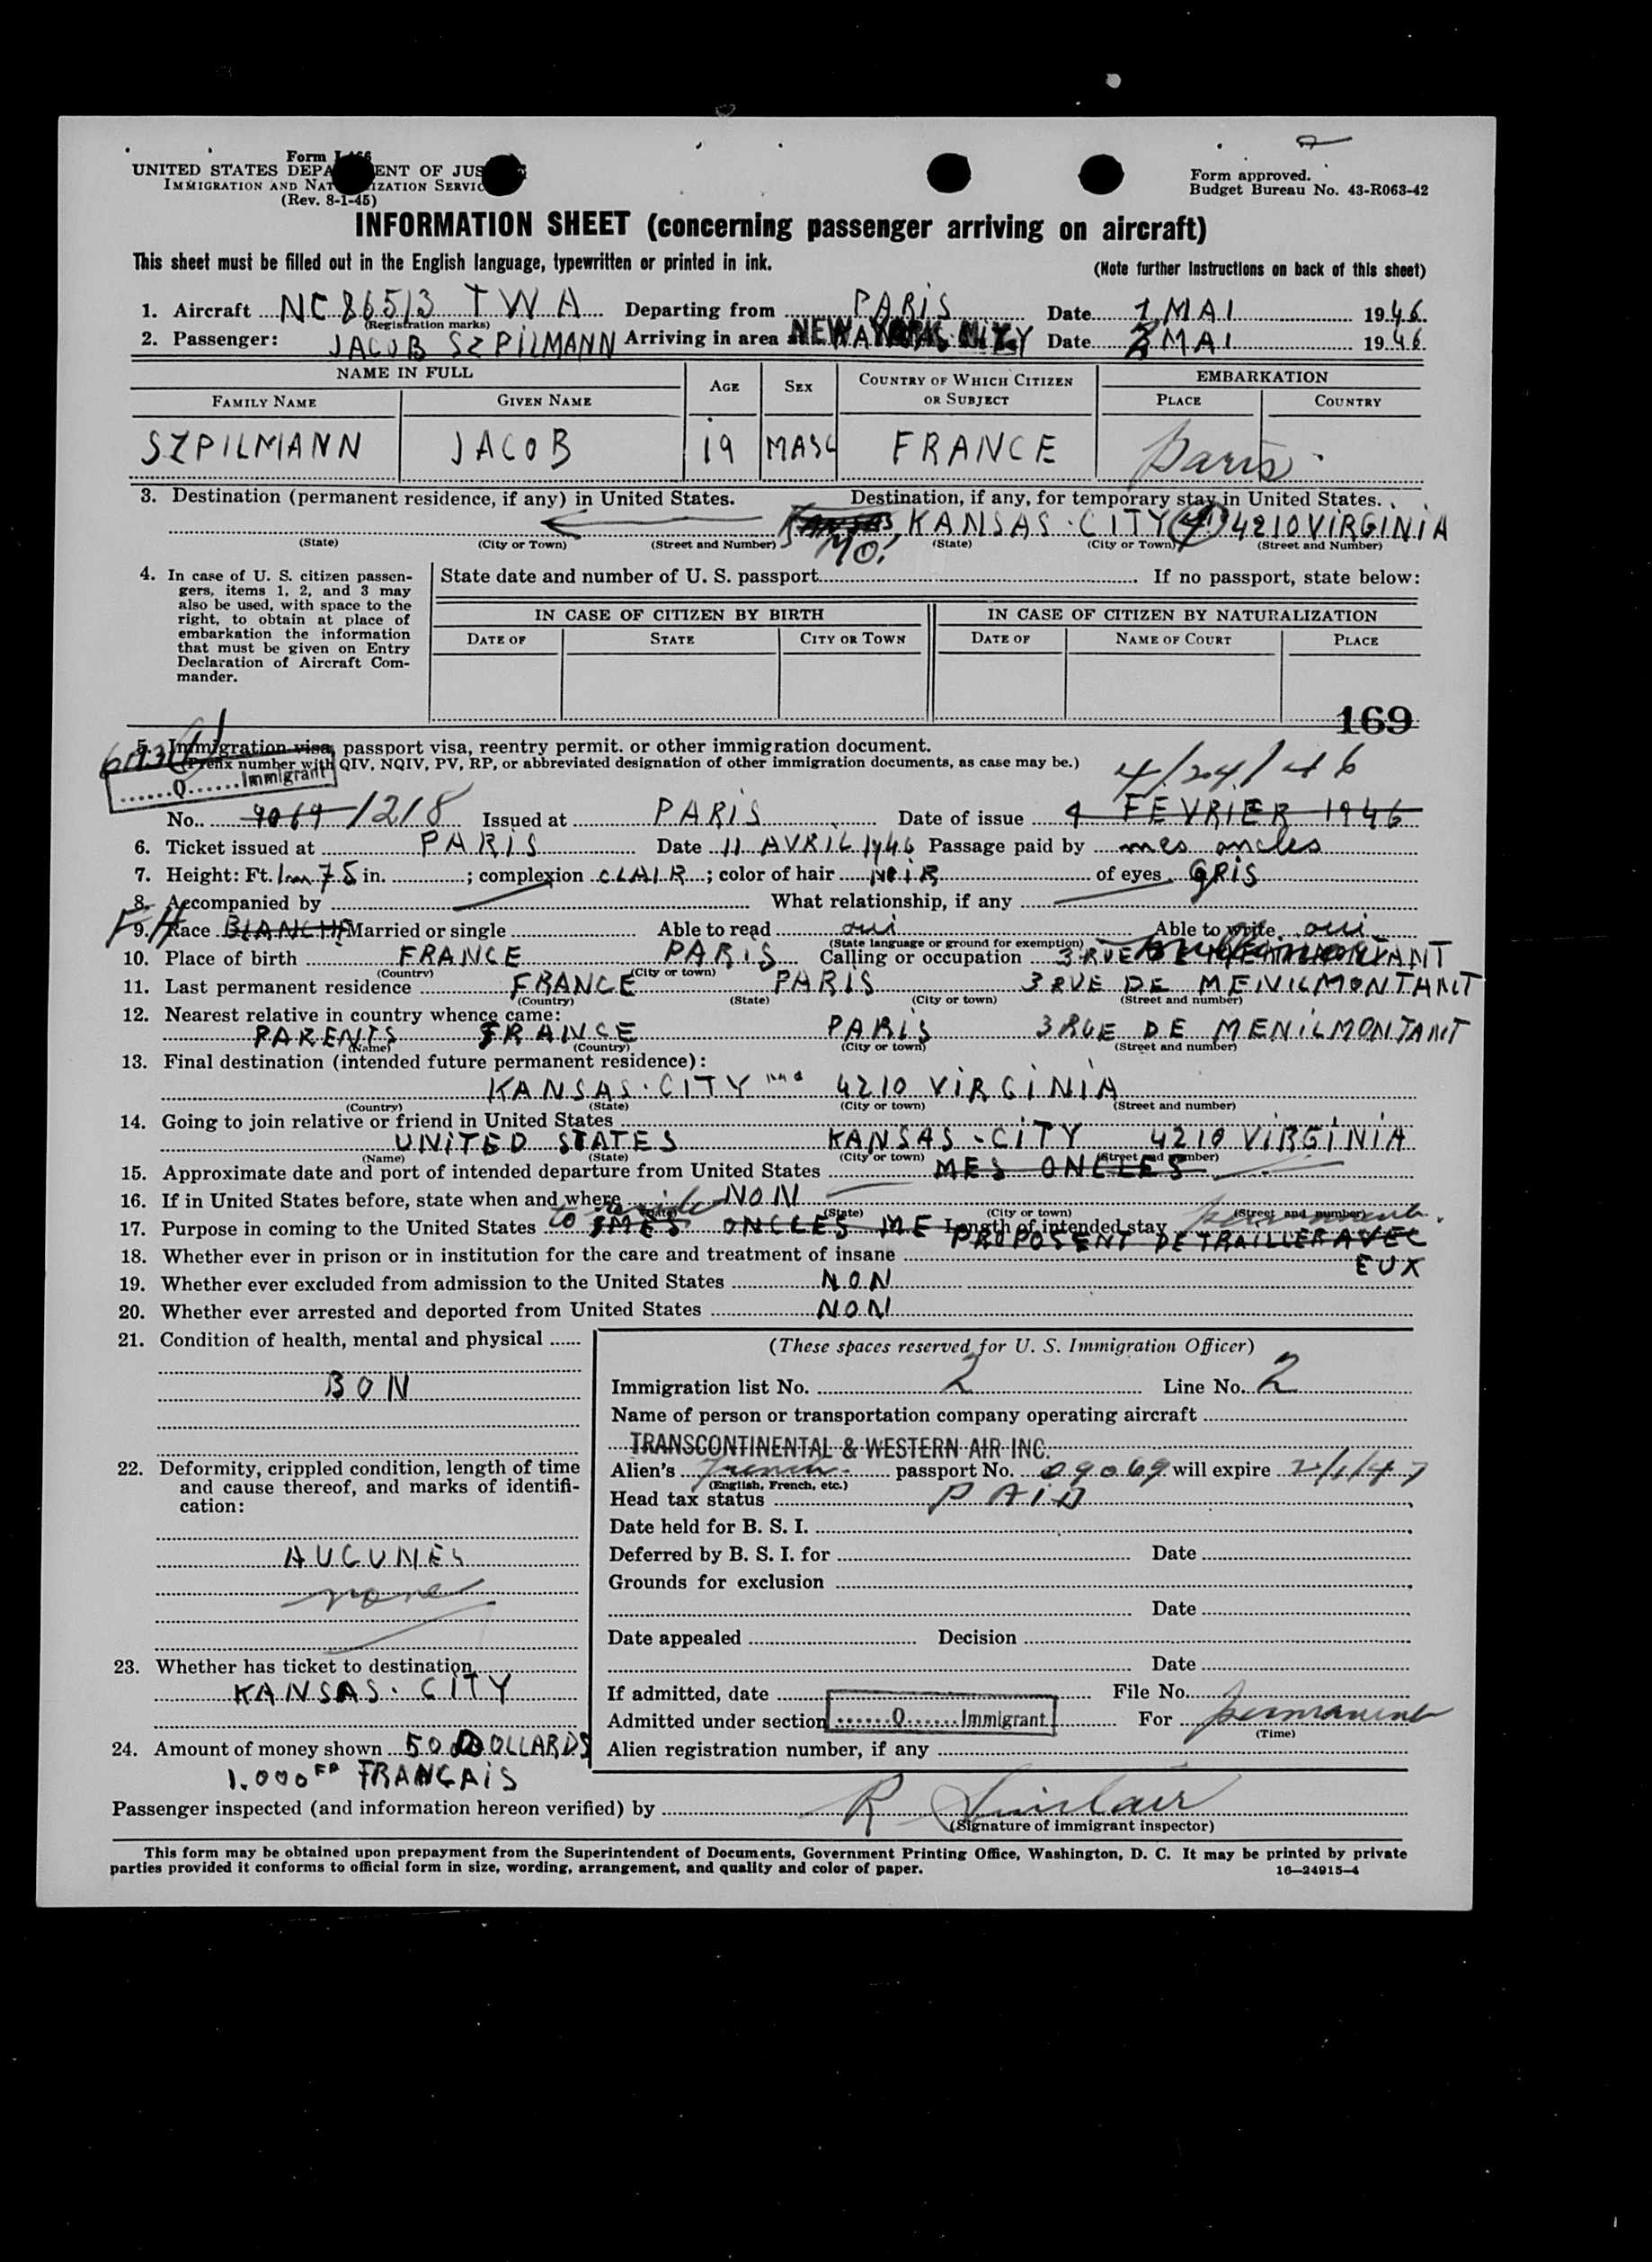 Form
UNITED STATES DEPA ENT OF JUS
IMMIGRATION AND NAT IZATION SERVIC
(Rev. 8-1-45)
Form approved.
Budget Bureau No. 43-R063-42
INFORMATION SHEET (concerning passenger arriving on aircraft)
This sheet must be filled out in the English language, typewritten or printed in ink.
(Note further instructions on back of this sheet)
1. Aircraft NC 86513 TWA Departing from PARIS Date 1 MAI 1946
(Registration marks)
2. Passenger: JACOB SZPILMANN Arriving in area NEW YORK Date 2 MAI 1946
NAME IN FULL AGE SEX COUNTRY OF WHICH CITIZEN OR SUBJECT EMBARKATION
FAMILY NAME GIVEN NAME PLACE COUNTRY
SZPILMANN JACOB 19 MASC FRANCE Paris
3. Destination (permanent residence, if any) in United States. Destination, if any, for temporary stay in United States.
KANSAS MO. KANSAS. CITY 4 4210 VIRGINIA
(State) (City or Town) (Street and Number) (State) (City or Town) (Street and Number)
4. In case of U. S. citizen passengers, items 1, 2, and 3 may
also be used, with space to the
right, to obtain at place of
embarkation the information
that must be given on Entry
Declaration of Aircraft Commander.
State date and number of U. S. passport If no passport, state below:
IN CASE OF CITIZEN BY BIRTH IN CASE OF CITIZEN BY NATURALIZATION
DATE OF STATE CITY OR TOWN DATE OF NAME OF COURT PLACE
169
5. Immigration visa, passport visa, reentry permit. or other immigration document.
(Prefix number with QIV, NQIV, PV, RP, or abbreviated designation of other immigration documents, as case may be.)
Q Immigrant
4/24/46
No. 9069 1218 Issued at PARIS Date of issue 4 FEVRIER 1946
6. Ticket issued at PARIS Date 11 AVRIL 1946 Passage paid by mes oncles
7. Height: Ft. 1m 75 in. ; complexion CLAIR ; color of hair NOIR of eyes GRIS
8. Accompanied by What relationship, if any
9. Race BLANCHE Married or single Able to read oui Able to write oui
(State language or ground for exemption)
10. Place of birth FRANCE PARIS Calling or occupation 3 RUE
(Country) (City or town)
11. Last permanent residence FRANCE PARIS 3 RUE DE MENILMONTANT
(Country) (State) (City or town) (Street and number)
12. Nearest relative in country whence came:
PARENTS FRANCE PARIS 3 RUE DE MENILMONTANT
(Name) (Country) (City or town) (Street and number)
13. Final destination (intended future permanent residence):
KANSAS. CITY mo 4210 VIRGINIA
(Country) (State) (City or town) (Street and number)
14. Going to join relative or friend in United States
UNITED STATES KANSAS-CITY 4210 VIRGINIA
(Name) (State) (City or town) (Street and number)
15. Approximate date and port of intended departure from United States MES ONCLES
16. If in United States before, state when and where NON
(Date) (State) (City or town) (Street and number)
17. Purpose in coming to the United States to reside MES ONCLES ME Length of intended stay permanent
PROPOSENT DE TRAILLER AVEC
18. Whether ever in prison or in institution for the care and treatment of insane EUX
19. Whether ever excluded from admission to the United States NON
20. Whether ever arrested and deported from United States NON
21. Condition of health, mental and physical
BON
22. Deformity, crippled condition, length of time
and cause thereof, and marks of identification:
AUCUNES
none
23. Whether has ticket to destination
KANSAS. CITY
24. Amount of money shown 50 DOLLARDS
1.000 FR FRANCAIS
(These spaces reserved for U. S. Immigration Officer)
Immigration list No. 2 Line No. 2
Name of person or transportation company operating aircraft
TRANSCONTINENTAL & WESTERN AIR INC.
Alien's French passport No. 09069 will expire 2/1/47
(English, French, etc.)
Head tax status PAID
Date held for B. S. I.
Deferred by B. S. I. for Date
Grounds for exclusion
Date
Date appealed Decision
Date
If admitted, date File No.
Admitted under section Q Immigrant For permanent
(Time)
Alien registration number, if any
Passenger inspected (and information hereon verified) by R Sinclair
(Signature of immigrant inspector)
This form may be obtained upon prepayment from the Superintendent of Documents, Government Printing Office, Washington, D. C. It may be printed by private
parties provided it conforms to official form in size, wording, arrangement, and quality and color of paper. 16—24915-4